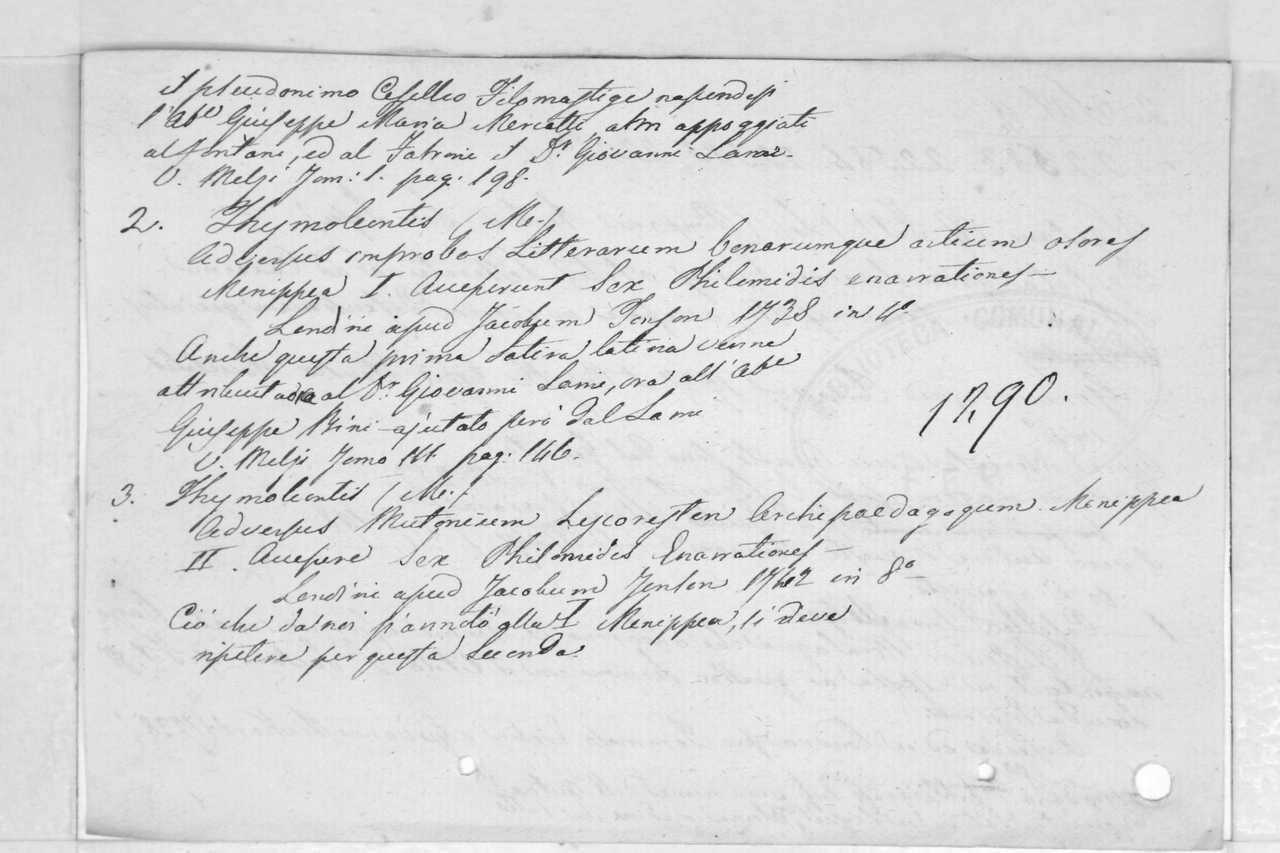 il pseudonimo Cesellio Filomastige nascondesi
l'Ab.e Giuseppe Maria Mercatti, altri appoggiati
al Fontani, ed al Fabroni il D.r Giovanni Lami.
V. Melzi Tom: 1. pag. 198.
2. Thymoleontis (M.)
Adversus improbos Litterarum bonarumque artium osores
Menippea I. Acceperunt Sex Philomidis enarrationes —
Londini apud Jacobum Tonson 1738 in 4°
Anche questa prima Satira latina venne
attribuita ora al D.r Giovanni Lami, ora all'Ab.e
Giuseppe Bini ajutato però dal Lami
V. Melzi Tomo III pag. 146.
1290.
3. Thymoleontis (M.)
Adversus Mutonium Lycoresten Archipaedagogum. Menippea
II. Accepere Sex Philomidis Enarrationes —
Londini apud Jacobum Tonson 1742 in 8°
Ciò che da noi s'annotò alla I Menippea, si deve
ripetere per questa Seconda.